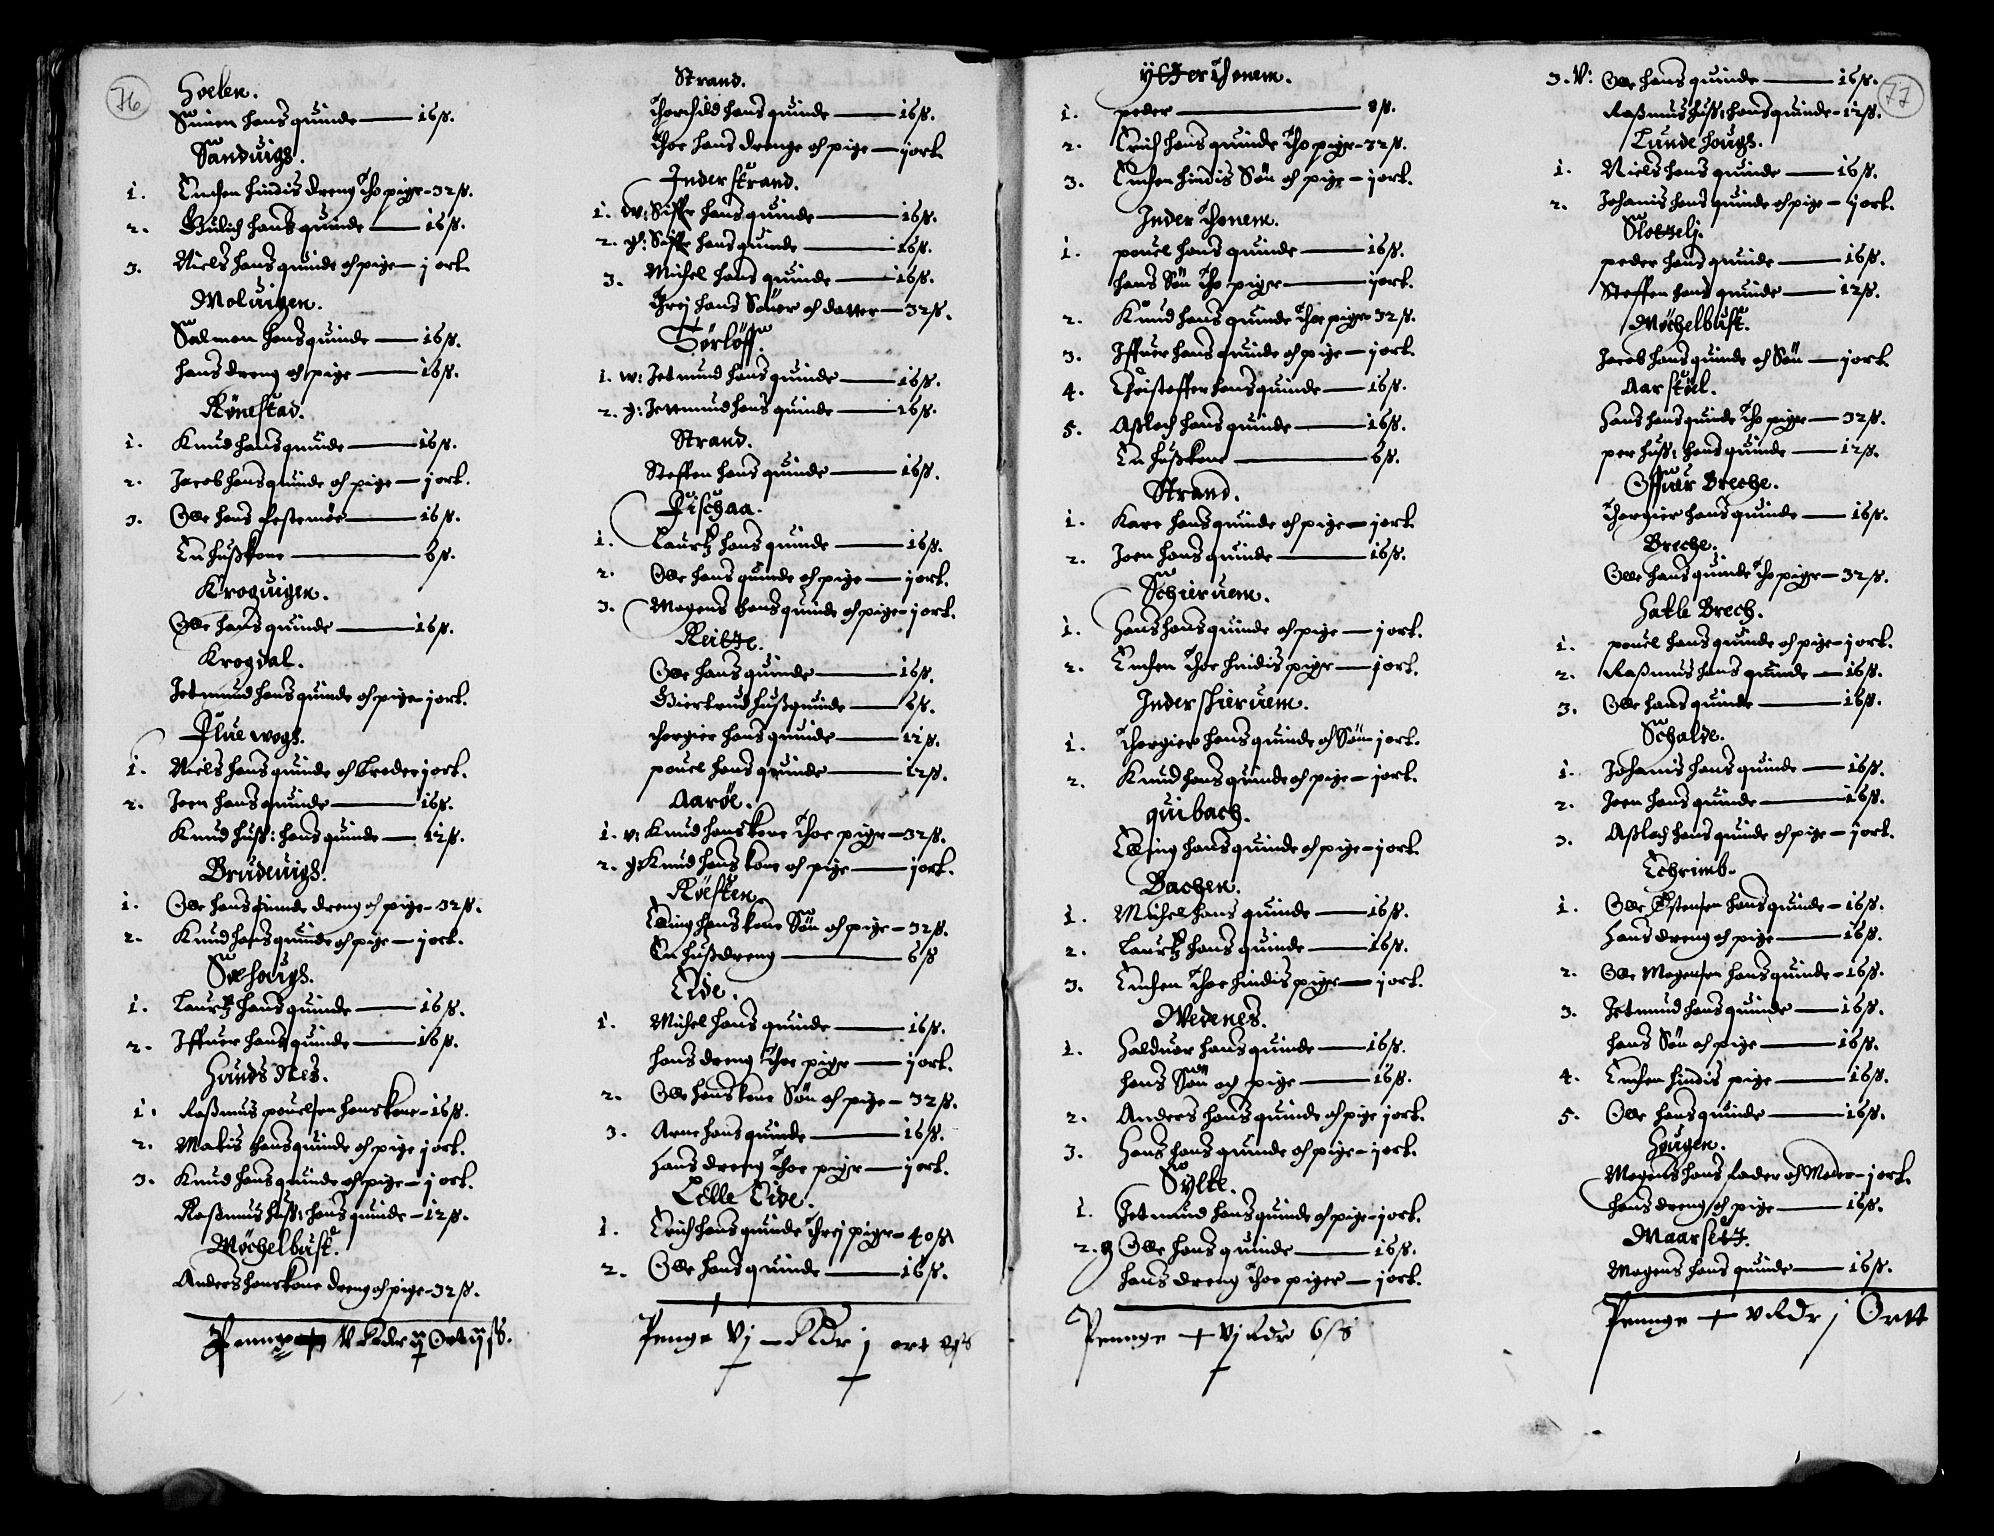 76
Hoelen.
Simen hans quinde — 16 ß.
Sanduigs.
1. Enchen hindis dreng tho piger - 32 ß.
2. Gulich hans quinde — 16 ß.
3. Niels hans quinde och pige — j ort.
Moluigen.
Salmon hans quinde — 16 ß.
hans dreng och pige — 16 ß.
Rönestad.
1. Knud hans quinde — 16 ß.
2. Jacob hans quinde och pige — j ort.
3. Olle hans festemöe — 16 ß.
En hußkone — 6 ß.
Kroguigen.
Olle hans quinde — 16 ß.
Krogdal.
Jetmund hans quinde och pige - j ort.
Fluewogs.
1. Niels hans quinde och broder j ort.
2. Joen hans quinde — 16 ß.
Knud huß: hans quinde — 12 ß.
Bruduigs.
1. Olle hans quinde dreng och pige - 32 ß.
2. Knud hans quinde och pige — j ort.
Sæhougs.
1. Lauritz hans quinde — 16 ß.
2. Iffuer hans quinde — 16 ß.
Hunds Nes.
1. Raßmus pouelsen hans kone - 16 ß.
2. Matis hans quinde och pige j ort.
3. Knud hans quinde och pige — j ort.
Raßmus huß: hans quinde — 12 ß.
Möchelbust.
Anders hans kone dreng och pige - 32 ß.
Penge V Rdr ij Ort ij ß.
Strand.
Thorchild hans quinde — 16 ß.
Thoe hans drenge och pige — j ort.
Inderstrand.
1. w: Siffr hans quinde — 16 ß.
2. g: Siffr hans quinde — 16 ß.
3. Michel hans quinde — 16 ß.
threj hans Söner och datter — 32 ß.
Törlöff.
1. w: Jetmund hans quinde — 16 ß.
2. g: Jettmund hans quinde — 16 ß.
Strand.
Steffen hans quinde — 16 ß.
Fischaa.
1. Lauritz hans quinde — 16 ß.
2. Olle hans quinde och pige — j ort.
3. Mogens hans quinde och pige - j ort.
Reitze.
Olle hans quinde — 16 ß.
Giertrud hußquinde — 6 ß.
thorgier hans quinde — 12 ß.
pouel hans quinde — 12 ß.
Aaröe.
1. v: Knud hans kone thoe piger — 32 ß.
2. g: Knud hans kone och pige — j ort.
Röesten.
Elling hans kone Sön och pige — 32 ß.
En hußdreng — 6 ß
Eide.
1. Michel hans quinde — 16 ß.
hans dreng thoe piger — j ort.
2. Olle hans kone Sön och pige — 32 ß.
3. Arne hans quinde — 16 ß.
hans dreng thoe piger — j ort.
Lille Eide.
1. Erich hans quinde threj piger — 40 ß
2. Olle hans quinde — 16 ß.
Penge Vj — Rdr j ort 8 ß
ytterthonem.
1. peder — 8 ß.
2. Erich hans quinde tho piger - 32 ß.
3. Enchen hindis Sön och pige — j ort.
Inder thonem.
1. pouel hans quinde — 16 ß.
hans Sön tho piger — j ort.
2. Knud hans quinde thoe piger 32 ß.
3. Iffuer hans quinde och pige — j ort.
4. Christoffer hans quinde — 16 ß.
5. Aßlach hans quinde — 16 ß.
En hußkone — 6 ß.
Strand.
1. Kare hans quinde och pige — j ort.
2. Joen hans quinde — 16 ß.
Schieruem.
1. Hans hans quinde och pige — j ort.
2. Enchen thoe hindis piger — j ort.
Inderschieruem.
1. Thorgier hans quinde och Sön j ort.
2. Knud hans quinde och pige — j ort.
quibach.
Elling hans quinde och pige - j ort.
Bachen.
1. Michel hans quinde — 16 ß.
2. Lauritz hans quinde — 16 ß.
3. Enchen thoe hindis piger — j ort.
Medenes.
1. Halduor hans quinde — 16 ß.
hans Sön och pige — 16 ß.
2. Anders hans quinde och pige j ort.
3. Hans hans quinde och pige - j ort.
Sylte.
1. Jetmund hans quinde och pige - j ort.
2. g Olle hans quinde — 16 ß.
hans dreng thoe piger — j ort.
Penge + vj Rdr 6 ß
77
3. V: Olle hans quinde — 16 ß.
Raßmus huß: hans quinde - 12 ß.
Lundehougs.
1. Niels hans quinde — 16 ß.
2. Johanis hans quinde och pige — j ort.
Slotzelj.
peder hans quinde — 16 ß.
Steffen hans quinde — 12 ß.
Möchelbust.
Jacob hans quinde och Sön — j ort
Aarstöel.
Hans hans quinde tho piger — 32 ß.
per huß: hans quinde — 12 ß.
Offuer Breche.
Thorgier hans quinde — 16 ß.
Breche.
Olle hans quinde tho piger — 32 ß.
Hatle Brech.
1. pouel hans quinde och pige - j ort.
2. Raßmus hans quinde — 16 ß.
3. Olle hans quinde — 16 ß.
Schalde.
1. Johanis hans quinde — 16 ß.
2. Joen hans quinde — 16 ß.
3. Aßlach hans quinde och pige — j ort.
Echrimb.
1. Olle Östensen hans quinde — 16 ß.
hans dreng och pige — 16 ß.
2. Olle Mogensen hans quinde - 16 ß.
3. Jetmund hans quinde — 16 ß.
hans Sön och pige — 16 ß.
4. Enchen hindis pige — 16 ß.
5. Olle hans quinde — 16 ß.
Hougen.
Mogens hans fader och Moder - j ort.
hans dreng och pige — 16 ß.
Maarsetz.
Mogens hans quinde — 16 ß.
Penge + v Rdr j Ortt